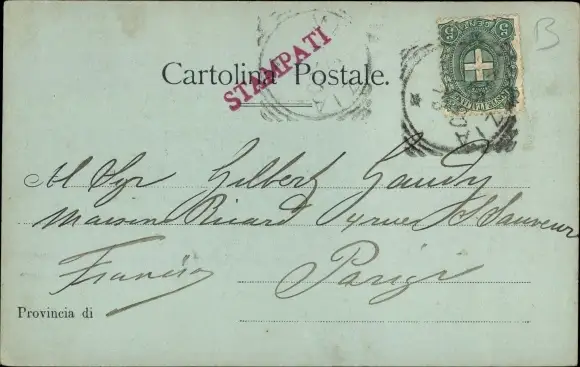 B
Cartolina Postale.
STAMPATI
Al Sgr Gilbert Gaudy
Maison Ricard 9 rue St Sauveur
Francia Parigi
Provincia di